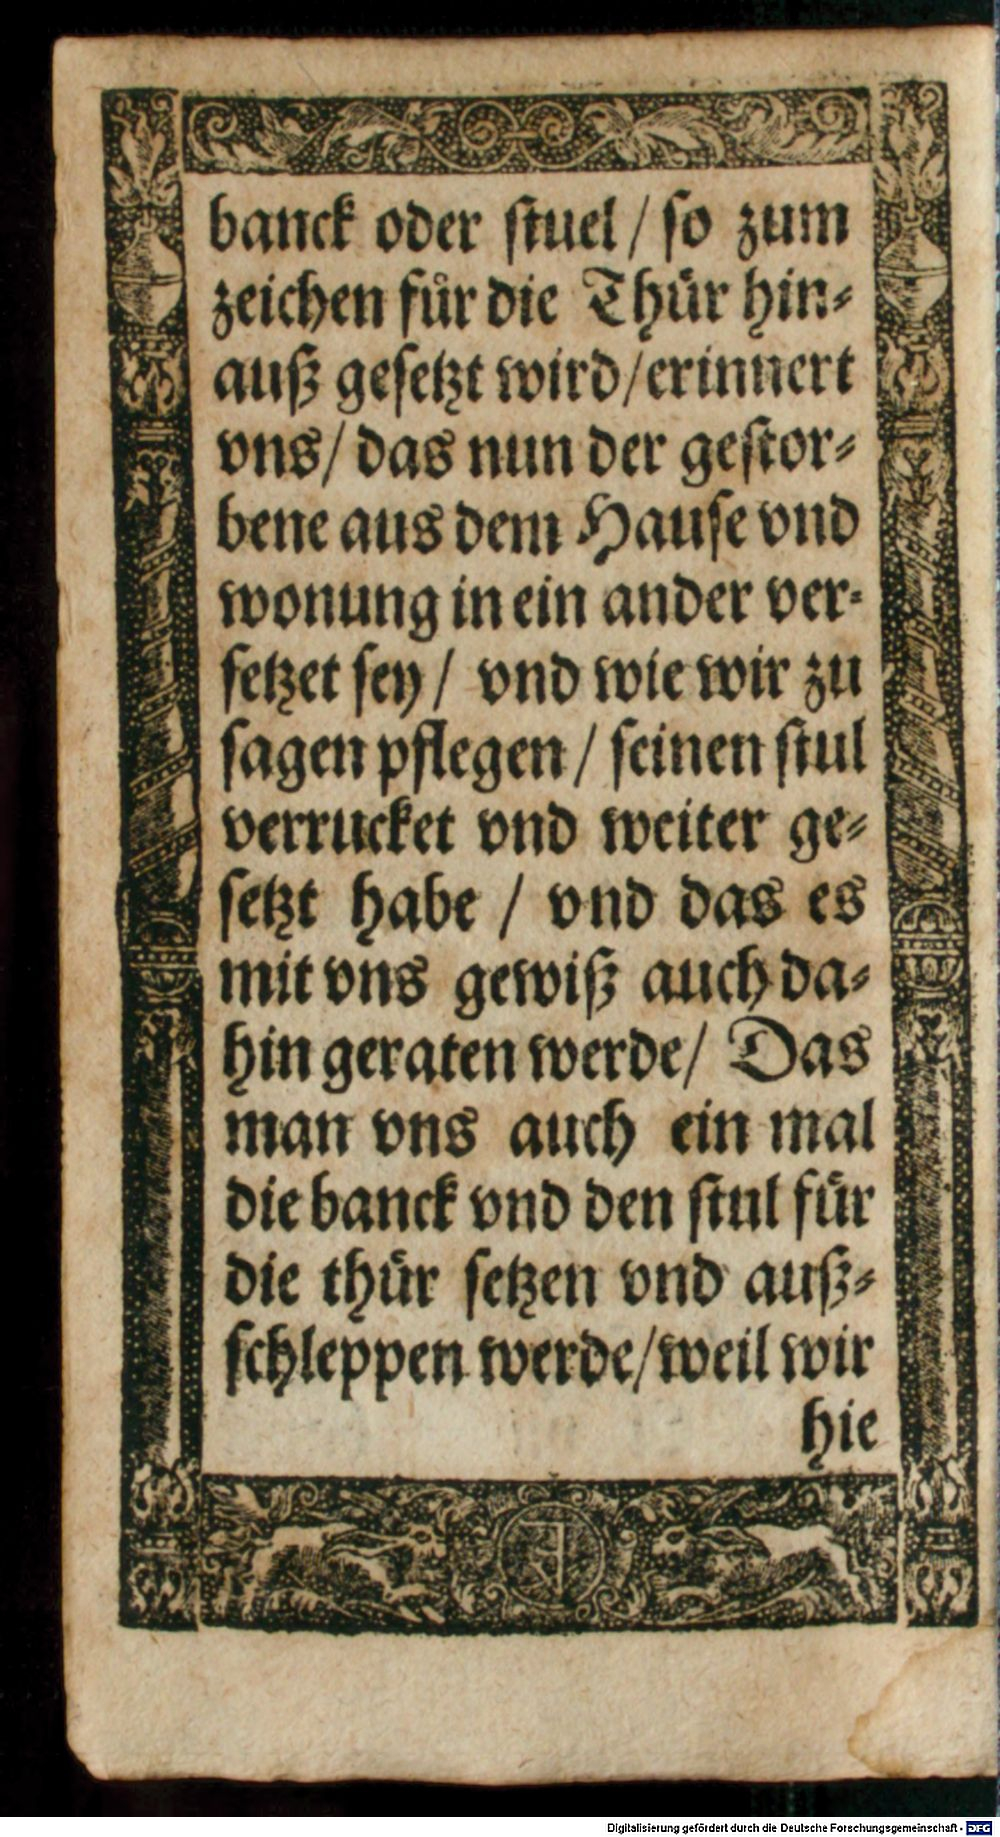 banck oder ſtuel / ſo zum
zeichen fuͤr die Thuͤr hin⸗
auß geſetzt wird / erinnert
vns / das nun der geſtor⸗
bene aus dem Hauſe vnd
wonung in ein ander ver⸗
ſetzet ſey / vnd wie wir zu
ſagen pflegen / ſeinen ſtul
verrucket vnd weiter ge⸗
ſetzt habe / vnd das es
mit vns gewiß auch da⸗
hin geraten werde / Das
man vns auch ein mal
die banck vnd den ſtul fuͤr
die thuͤr ſetzen vnd auß⸗
ſchleppen werde / weil wir
hie
Digitalisierung gefördert durch die Deutsche Forschungsgemeinschaft - DFG